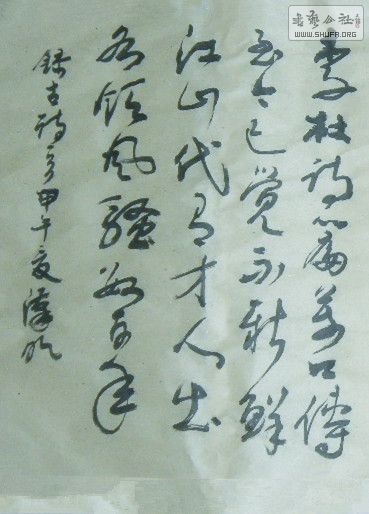 書藝公社
WWW.SHUFA.ORG
李杜詩篇萬口傳
至今已覺不新鮮
江山代有才人出
各領風騷數百年
錄古詩 甲午夏